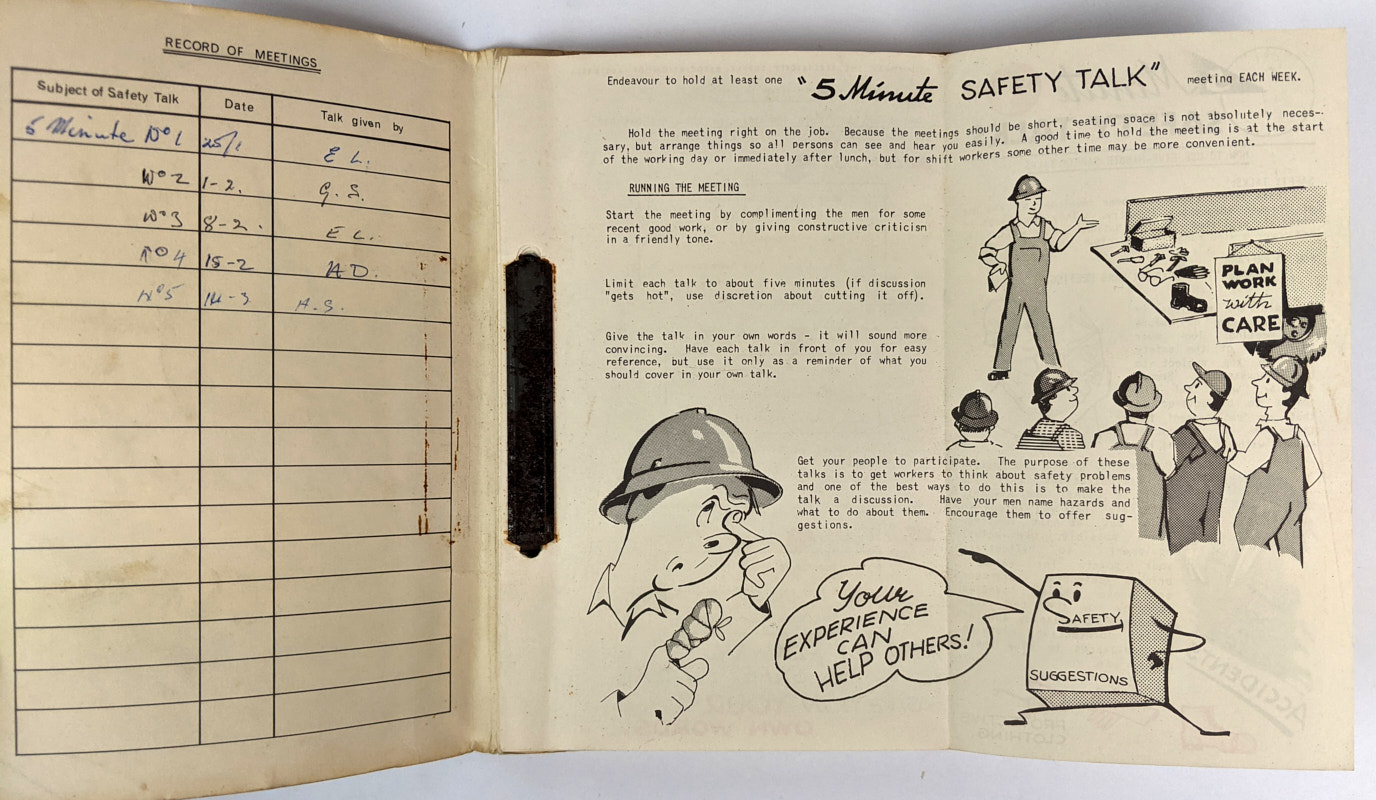 RECORD OF MEETINGS
Subject of Safety Talk Date Talk given by
5 Minute No 1 25/1 E L.
No 2 1-2. G. S.
No 3 8-2. E L.
No 4 15-2 A D.
No 5 14-3 A.S.
Endeavour to hold at least one "5 Minute SAFETY TALK" meeting EACH WEEK.
Hold the meeting right on the job. Because the meetings should be short, seating space is not absolutely neces-
sary, but arrange things so all persons can see and hear you easily. A good time to hold the meeting is at the start
of the working day or immediately after lunch, but for shift workers some other time may be more convenient.
RUNNING THE MEETING
Start the meeting by complimenting the men for some
recent good work, or by giving constructive criticism
in a friendly tone.
Limit each talk to about five minutes (if discussion
"gets hot", use discretion about cutting it off).
Give the talk in your own words - it will sound more
convincing. Have each talk in front of you for easy
reference, but use it only as a reminder of what you
should cover in your own talk.
PLAN
WORK
with
CARE
Get your people to participate. The purpose of these
talks is to get workers to think about safety problems
and one of the best ways to do this is to make the
talk a discussion. Have your men name hazards and
what to do about them. Encourage them to offer sug-
gestions.
Your
EXPERIENCE
CAN
HELP OTHERS!
SAFETY
SUGGESTIONS